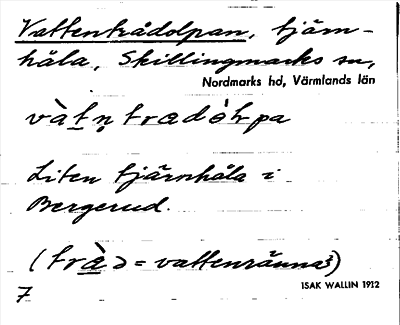 Vattentrådolpan, tjärn-
håla, Skillingmarks sn,
Nordmarks hd, Värmlands län
Liten tjärnhåla i
Bergerud.
= vattenränna?)
7
ISAK WALLIN 1912